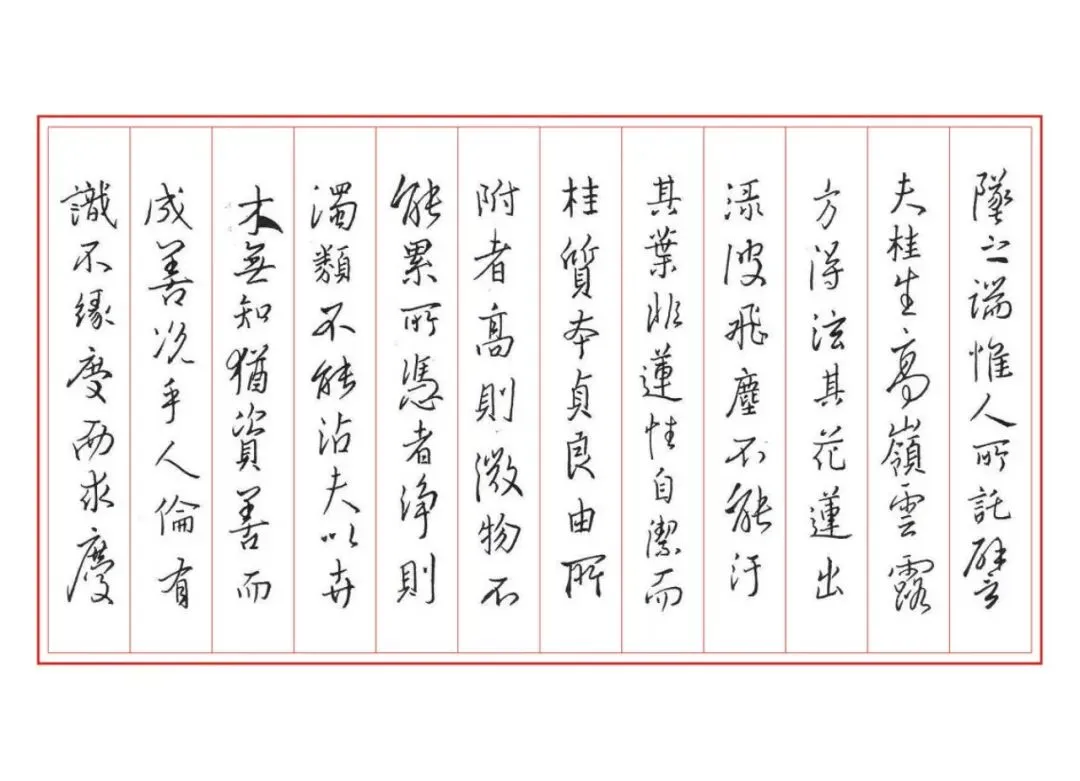 墜之端惟人所託譬
夫桂生高嶺雲露
方得泫其花蓮出
淥波飛塵不能汙
其葉非蓮性自潔而
桂質本貞良由所
附者高則微物不
能累所憑者淨則
濁類不能沾夫以卉
木無知猶資善而
成善況乎人倫有
識不緣慶而求慶